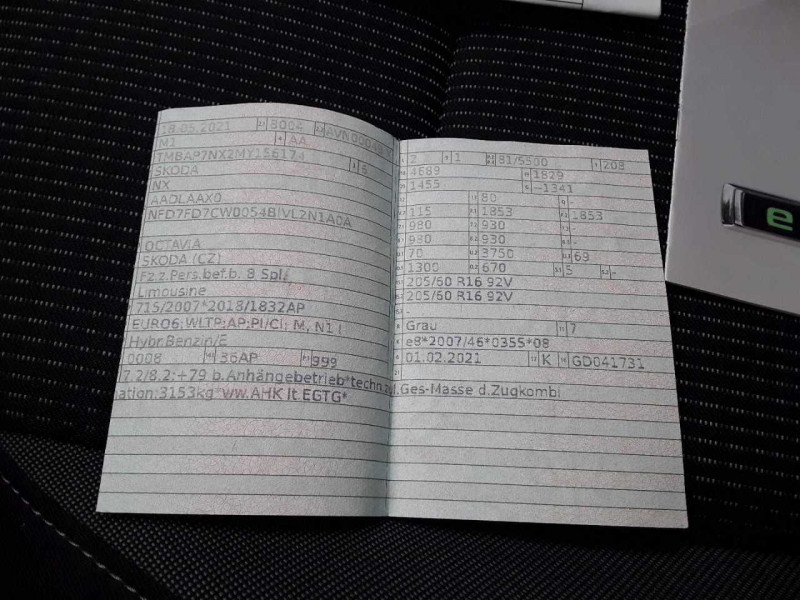 18.05.2021 8004 AVN00048
M1 AA
TMBAP7NX2MY156174
SKODA 5
NX
AADLAAX0
NFD7FD7CW0054BIVL2N1A0A
OCTAVIA
SKODA (CZ)
Fz.z.Pers.bef.b. 8 Spl.
Limousine
715/2007*2018/1832AP
EURO6;WLTP;AP;PI/CI; M, N1 I
Hybr.Benzin/E
0008 36AP 999
7.2/8.2:+79 b.Anhängebetrieb*techn.zul.Ges-Masse d.Zugkombi
nation:3153kg*ww.AHK lt.EGTG*
2 1 81/5500 208
4689 1829
1455 -1341
80 -
115 1853 1853
980 930 -
930 930 -
70 3750 69
1300 670 5 -
205/60 R16 92V
205/60 R16 92V
-
Grau 7
e8*2007/46*0355*08
01.02.2021 K GD041731
e